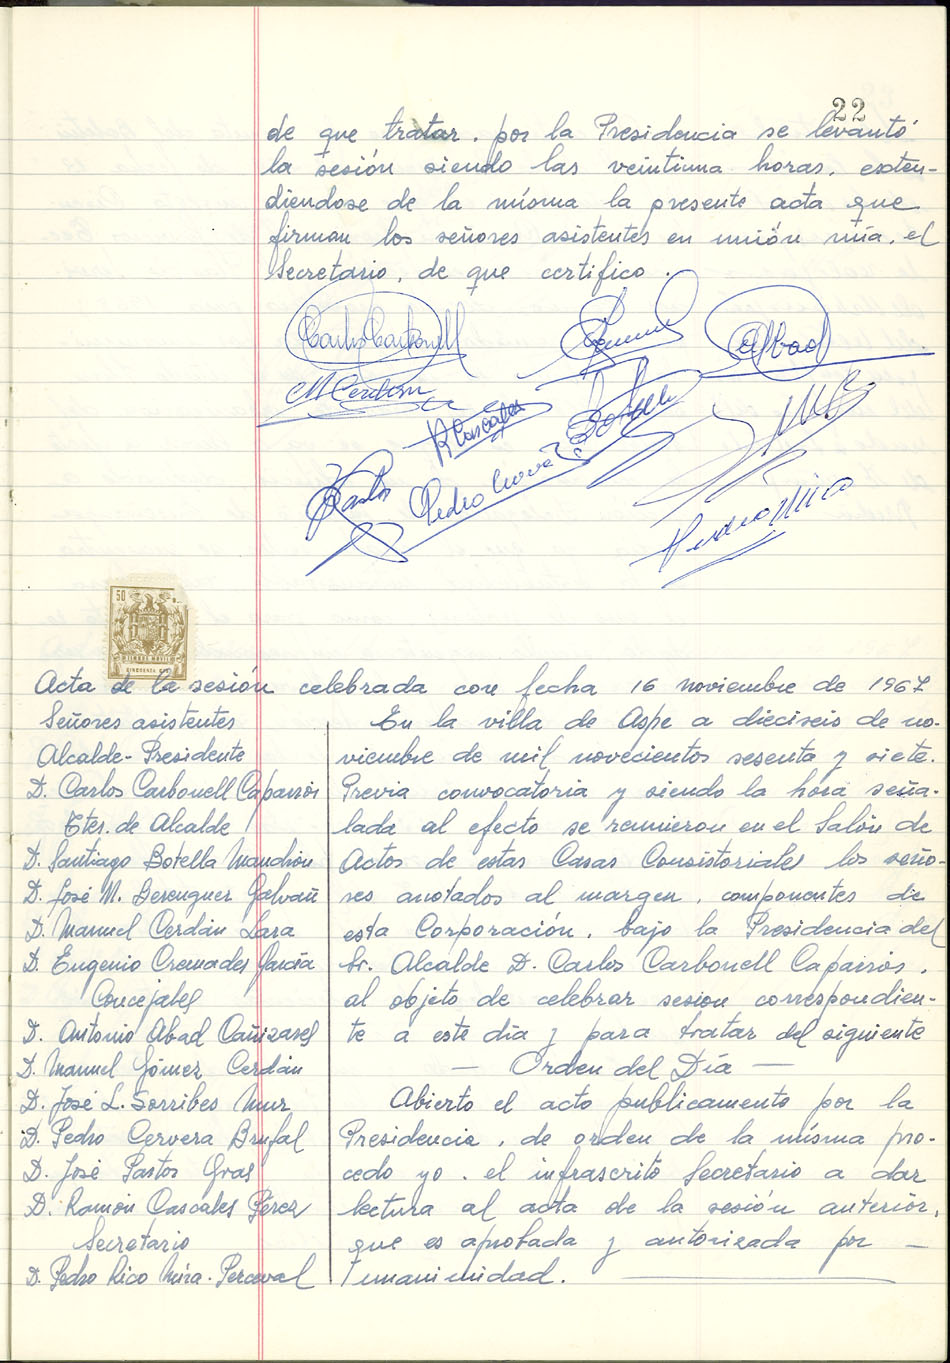 22
de que tratar, por la Presidencia se levantó
la sesión siendo las veintiuna horas, exten-
diendose de la misma la presente acta que
firman los señores asistentes en unión mía, el
Secretario, de que certifico.
Carlos Carbonell
Abad
M Cerdán
R Cascales
Botella
Pastos
Pedro
Pedro Rico
50
Acta de la sesión celebrada con fecha 16 noviembre de 1967
Señores asistentes
Alcalde-Presidente
D. Carlos Carbonell Caparrós
Ttes. de Alcalde
D. Santiago Botella Mandrión
D. José M. Berenguer Galvañ
D. Manuel Cerdán Lara
D. Eugenio Cremades García
Concejales
D. Antonio Abad Cañizares
D. Manuel Gómez Cerdán
D. José L. Sorribes Mur
D. Pedro Cervera Brufal
D. José Pastos Gras
D. Ramón Cascales Pérez
Secretario
D. Pedro Rico Mira-Perceval
En la villa de Aspe a dieciseis de no-
viembre de mil novecientos sesenta y siete.
Previa convocatoria y siendo la hora seña-
lada al efecto se reunieron en el Salón de
Actos de estas Casas Consistoriales los seño-
res anotados al margen, componentes de
esta Corporación, bajo la Presidencia del
Sr. Alcalde D. Carlos Carbonell Caparrós,
al objeto de celebrar sesion correspondien-
te a este día y para tratar del siguiente
— Orden del Día —
Abierto el acto publicamente por la
Presidencia, de orden de la misma pro-
cedo yo, el infrascrito Secretario a dar
lectura al acta de la sesión anterior,
que es aprobada y autorizada por —
unanimidad.